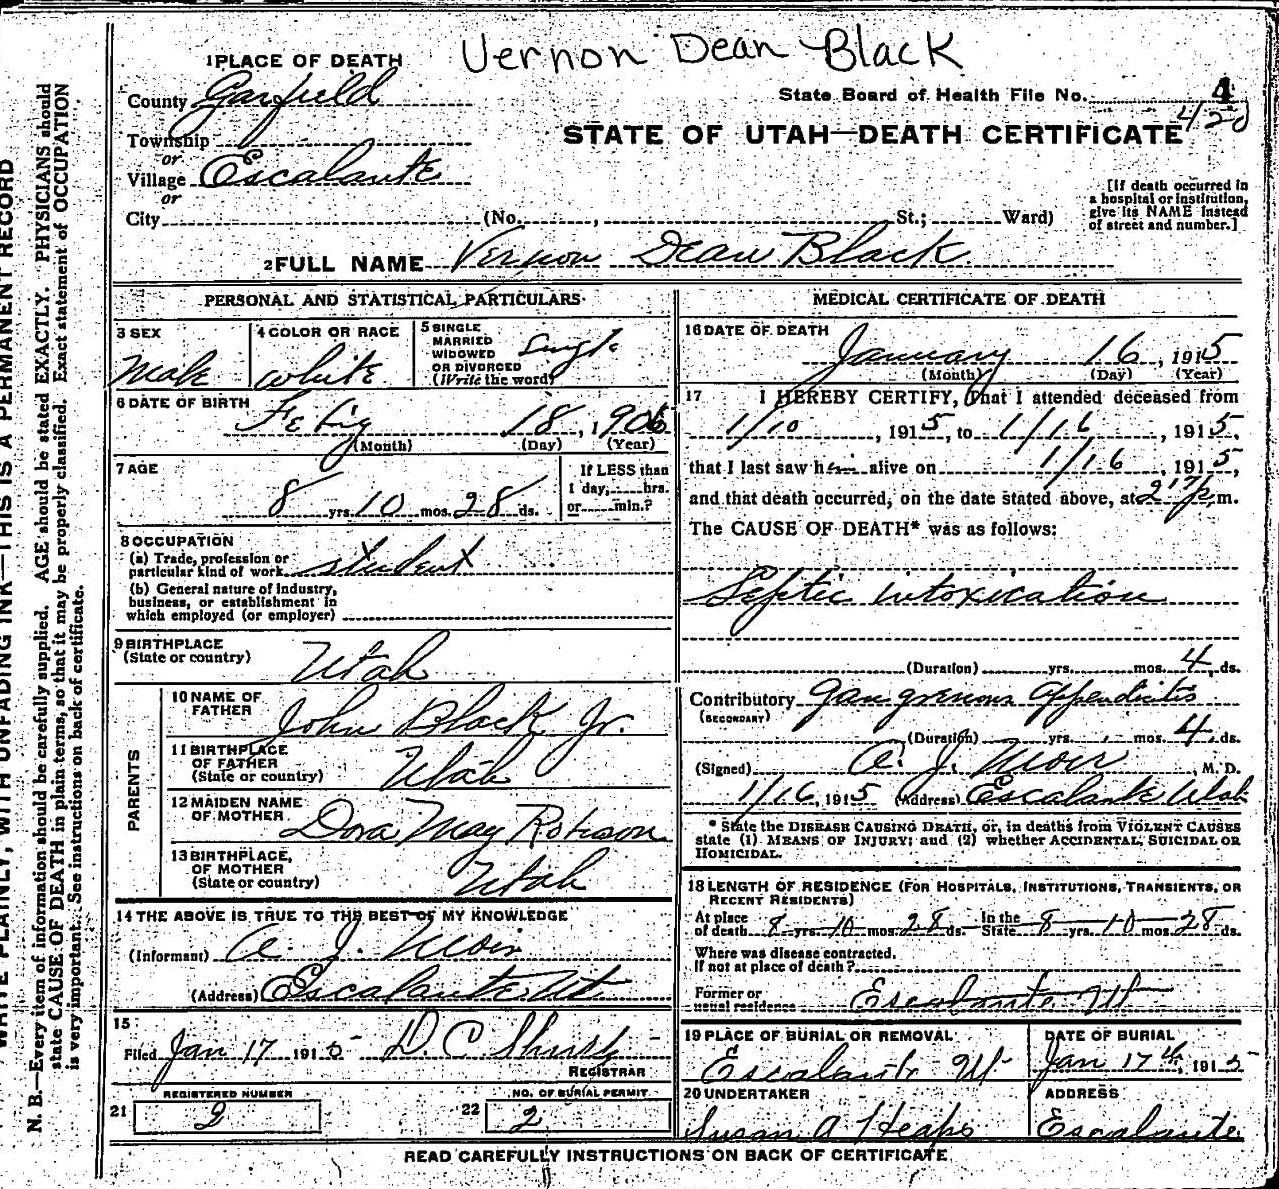 Vernon Dean Black
1 PLACE OF DEATH
County Garfield
State Board of Health File No. 4
4/20
Township
or
STATE OF UTAH—DEATH CERTIFICATE
Village Escalante
or
City (No. , St.; Ward)
[If death occurred in
a hospital or institution,
give its NAME instead
of street and number.]
2 FULL NAME Vernon Dean Black
PERSONAL AND STATISTICAL PARTICULARS
3 SEX
Male
4 COLOR OR RACE
white
5 SINGLE
MARRIED
WIDOWED
OR DIVORCED
(Write the word)
Single
6 DATE OF BIRTH
18, 1906
(Month) (Day) (Year)
7 AGE
8 yrs. 10 mos. 28 ds.
If LESS than
1 day, hrs.
or min.?
8 OCCUPATION
(a) Trade, profession or
particular kind of work student
(b) General nature of industry,
business, or establishment in
which employed (or employer)
9 BIRTHPLACE
(State or country) Utah
PARENTS
10 NAME OF
FATHER John Black Jr.
11 BIRTHPLACE
OF FATHER
(State or country) Utah
12 MAIDEN NAME
OF MOTHER Dora May Robison
13 BIRTHPLACE,
OF MOTHER
(State or country) Utah
14 THE ABOVE IS TRUE TO THE BEST OF MY KNOWLEDGE
(Informant) A. J. Moir
(Address) Escalante Ut
15
Filed Jan 17 1915 D. C. Shurtz
REGISTRAR
REGISTERED NUMBER
21 2
NO. OF BURIAL PERMIT
22 2
MEDICAL CERTIFICATE OF DEATH
16 DATE OF DEATH
January 16, 1915
(Month) (Day) (Year)
17 I HEREBY CERTIFY, That I attended deceased from
1/10, 1915, to 1/16, 1915,
that I last saw him alive on 1/16, 1915,
and that death occurred, on the date stated above, at p.m.
The CAUSE OF DEATH* was as follows:
Septic intoxication
(Duration) yrs. mos. 4 ds.
Contributory Gangrenous appendicitis
(SECONDARY)
(Duration) yrs. mos. 4 ds.
(Signed) A. J. Moir, M. D.
1/16, 1915 (Address) Escalante Utah
* State the DISEASE CAUSING DEATH, or, in deaths from VIOLENT CAUSES
state (1) MEANS OF INJURY; and (2) whether ACCIDENTAL, SUICIDAL OR
HOMICIDAL.
18 LENGTH OF RESIDENCE (FOR HOSPITALS, INSTITUTIONS, TRANSIENTS, OR
RECENT RESIDENTS)
At place
of death 8 yrs. 10 mos. 28 ds.
In the
State 8 yrs. 10 mos. 28 ds.
Where was disease contracted.
If not at place of death?
Former or
usual residence Escalante Ut
19 PLACE OF BURIAL OR REMOVAL
Escalante Ut
DATE OF BURIAL
Jan 17th, 1915
20 UNDERTAKER
Susan A Heaps
ADDRESS
Escalante
READ CAREFULLY INSTRUCTIONS ON BACK OF CERTIFICATE
WRITE PLAINLY, WITH UNFADING INK—THIS IS A PERMANENT RECORD
N. B.—Every item of information should be carefully supplied. AGE should be stated EXACTLY. PHYSICIANS should
state CAUSE OF DEATH in plain terms, so that it may be properly classified. Exact statement of OCCUPATION
is very important. See instructions on back of certificate.